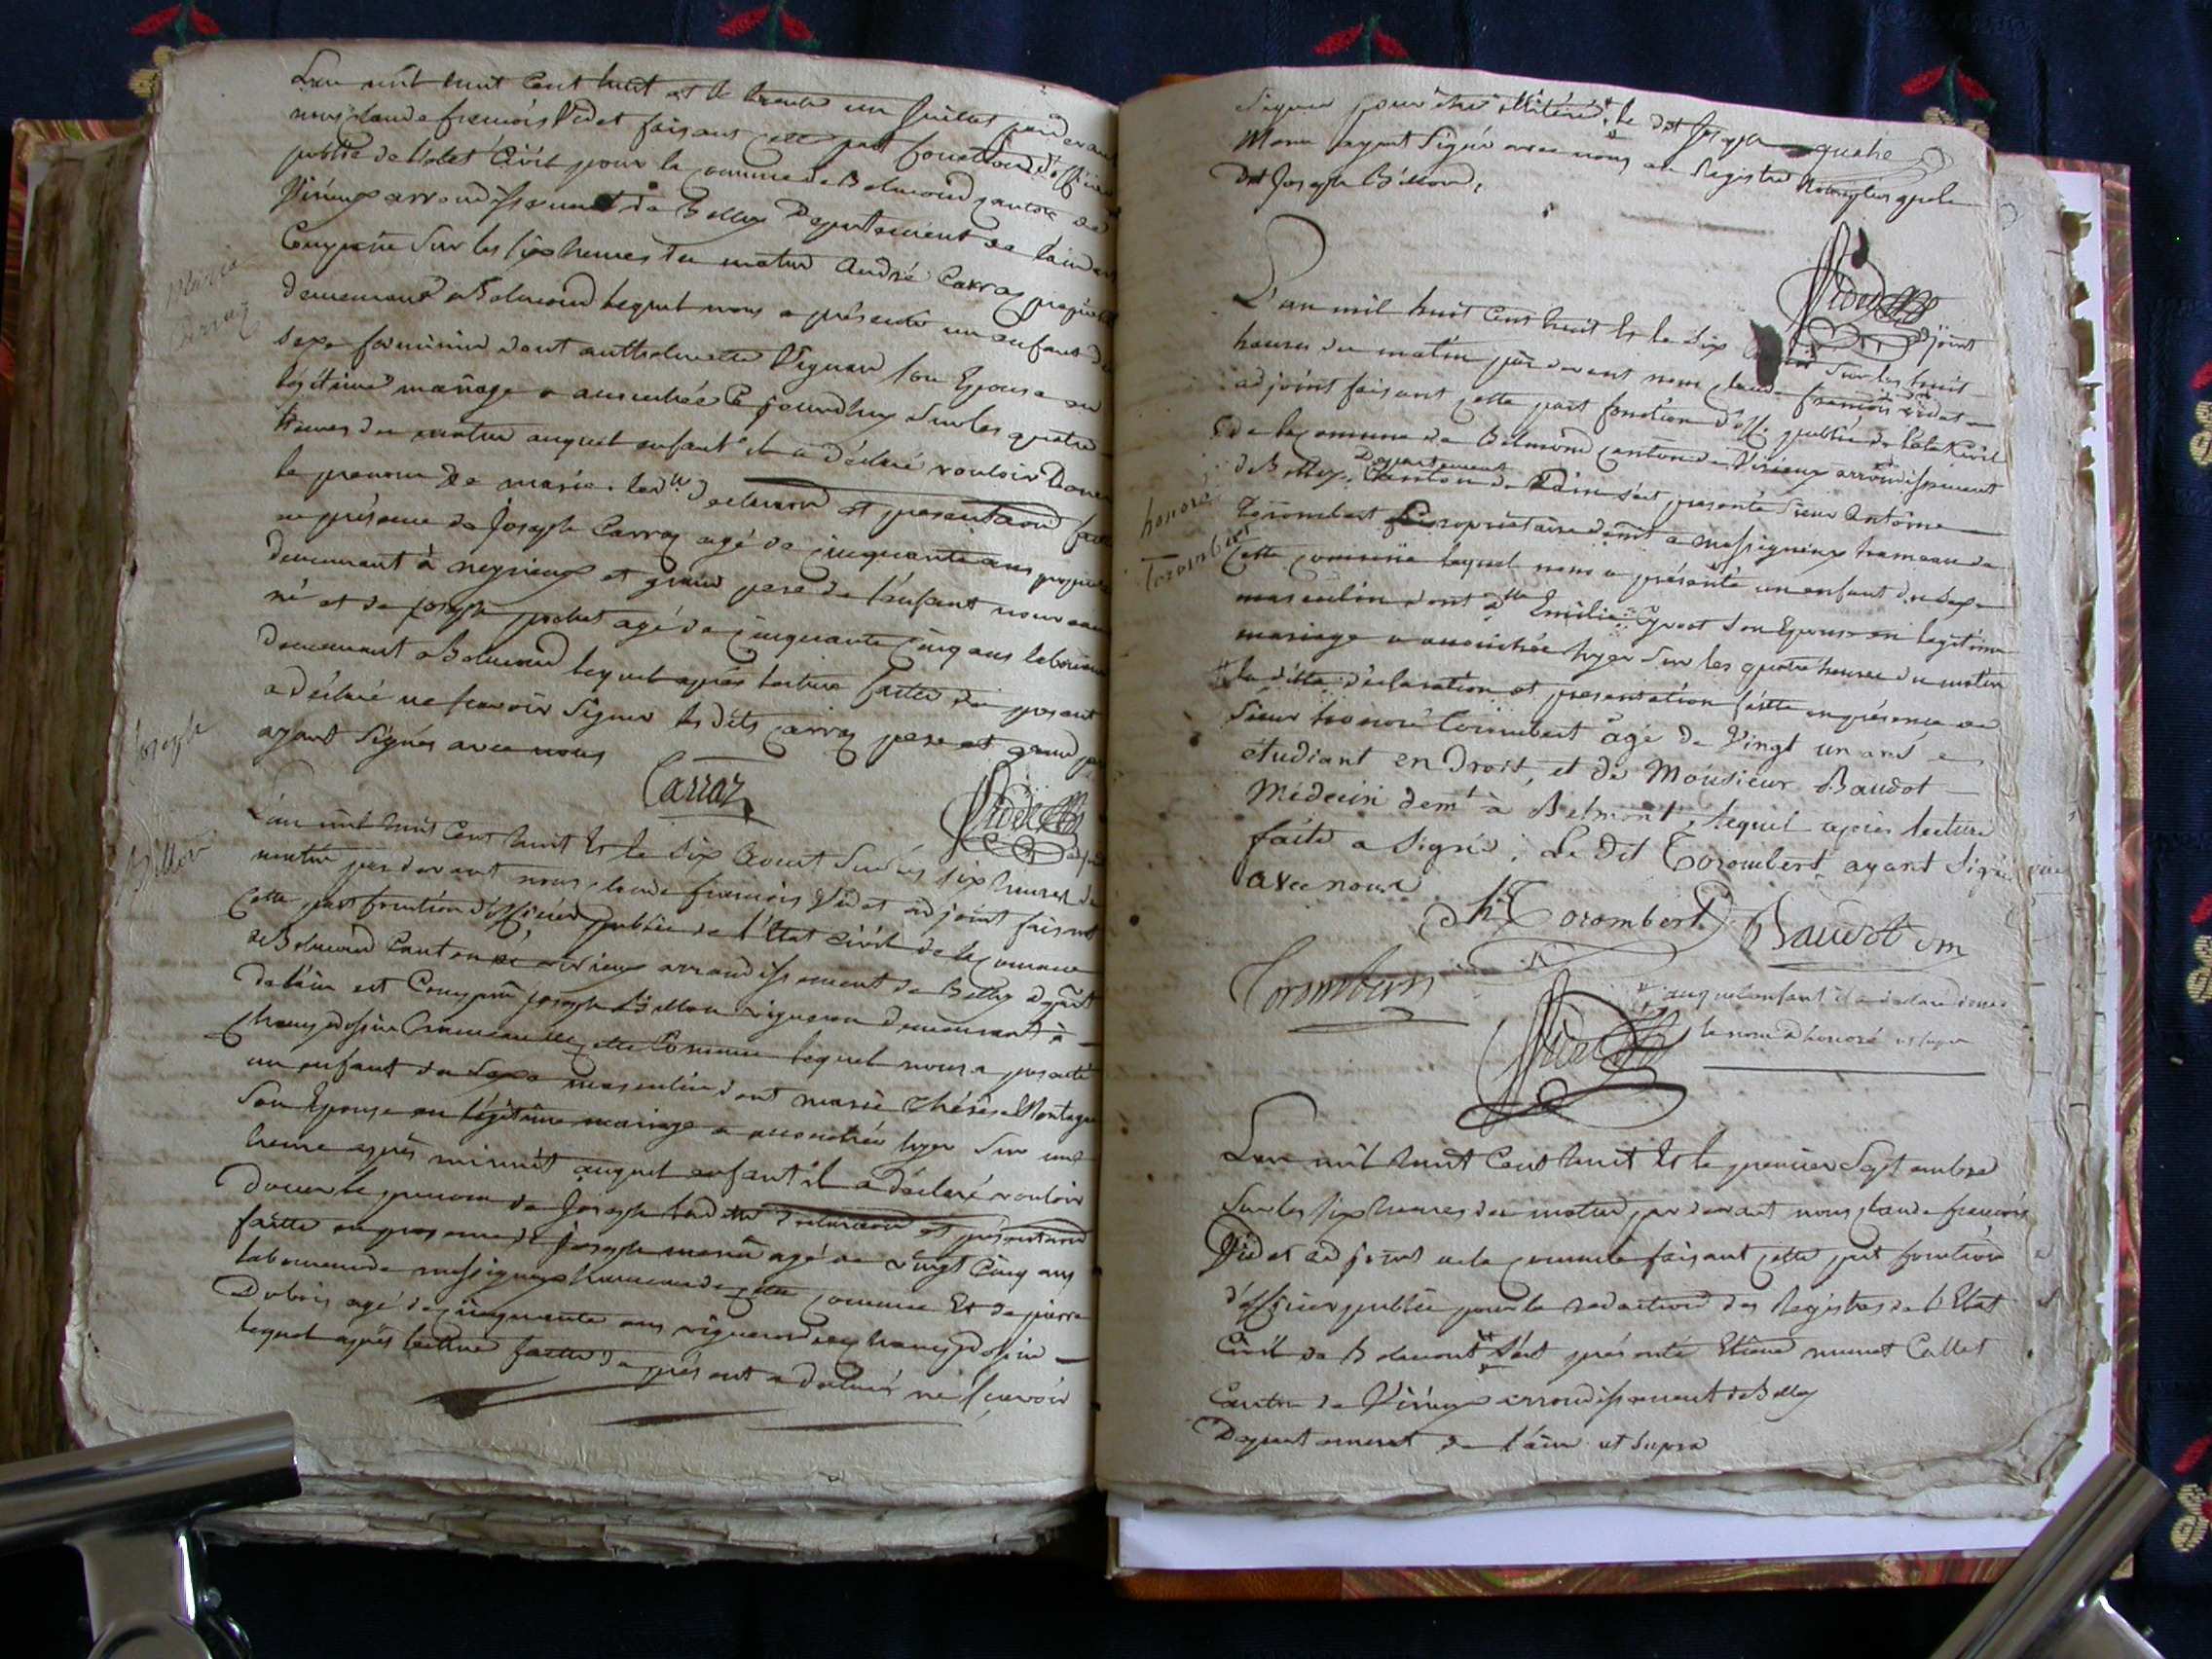 L'an mil huit cent huit et le trente un Juillet par devant
nous claude francois Videt faisant cette part fonction d'officier
public de l'etat Civil pour la commune de Belmond canton de
Virieux arrondissement de Belley Departement de l'ain est
Comparu sur les six heures du matin André Carraz propriétaire
demeurant a Belmond lequel nous a présenté un enfant du
sexe féminin dont anthelmette Vignan son Epouse en
légitime mariage a accouchée ce jourdhuy sur les quatre
heures du matin auquel enfant il a déclaré vouloir Donner
le prenom de marie. les d.tes declaration et presentation faites
en présence de Joseph Carraz agé de cinquante ans propriétaire
demeurant à neyrieux et grand pere de l'enfant nouveau
né et de Joseph pochet agé de cinquante cinq ans laboureur
demeurant a Belmond lequel après lecture faitte du present
a déclaré ne scavoir signer les dits Carraz pere et grand pere
ayant signés avec nous
Marie
Carraz
Carraz
Videt
adjoint
Joseph
Billon
L'an mil huit cent huit & le six aout sur les six heures du
matin par devant nous claude francois Videt adjoint faisant
cette part fonction d'officier public de l'Etat civil de la commune
de Belmond canton de virieux arrondissement de Belley depart.t
de l'ain est Comparu Joseph Billon vigneron demeurant à
Champdossin hameau de cette Commune lequel nous a presenté
un enfant du Sexe masculin dont marie thérèse Montagn
Son Epouse en légitime mariage a accouchée hyer sur une
heure après minuit auquel enfant il a déclaré vouloir
donner le prenom de Joseph les dittes declaration et présentation
faitte en presence de Joseph marin agé de vingt Cinq ans
laboureur de massignieux hameau de cette commune Et de pierre
Dubois agé de cinquante ans vigneron de champdossin
lequel après lecture faitte du présent a declaré ne scavoir
signer pour être illitéré, le dit Joseph
Marin ayant signé avec nous
Dit Joseph Billon,
Videt
adjoint
honoré
Torombert
L'an mil huit cent huit & le six aout sur les huit
heures du matin par devant nous claude francois Videt
adjoint faisant cette part fonction d'off. public de l'etat Civil
de la commune de Belmond canton de Virieux arrondissement
de Belley, Departement de l'ain s'est presenté Sieur Antôine
Torombert propriétaire dem.t a massignieux hameau de
Cette commune lequel nous a présenté un enfant du sexe
masculin dont d.lle Emilie Cyvoct son Epouse en legitime
mariage a accouchée hyer sur les quatre heures du matin
# la ditte déclaration et presentation faitte en présence de
Sieur honoré Torombert âgé de Vingt un ans
étudiant en Droit, et de Monsieur Baudot
Médecin dem.t à Belmont, lequel après lecture
faite a signé, Le Dit Torombert ayant signé
avec nous
h. Torombert Baudot Dm
Torombert
# auquel enfant il a declaré donner
le nom d'honoré ut supra
Videt
L'an mil huit cent huit & le premier Septembre
Sur les six heures du matin par devant nous claude francois
Videt adjoint de la commune faisant cette part fonction
d'officier public pour la redaction des Registres de l'Etat
Civil de Belmont s'est présenté Etiene munet Callet
Canton de Virieux arrondissement de Belley
Departement de l'ain ut supra